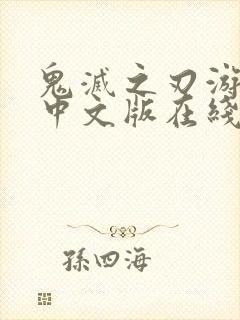 鬼滅之刃游
中文版在綫
孫四海